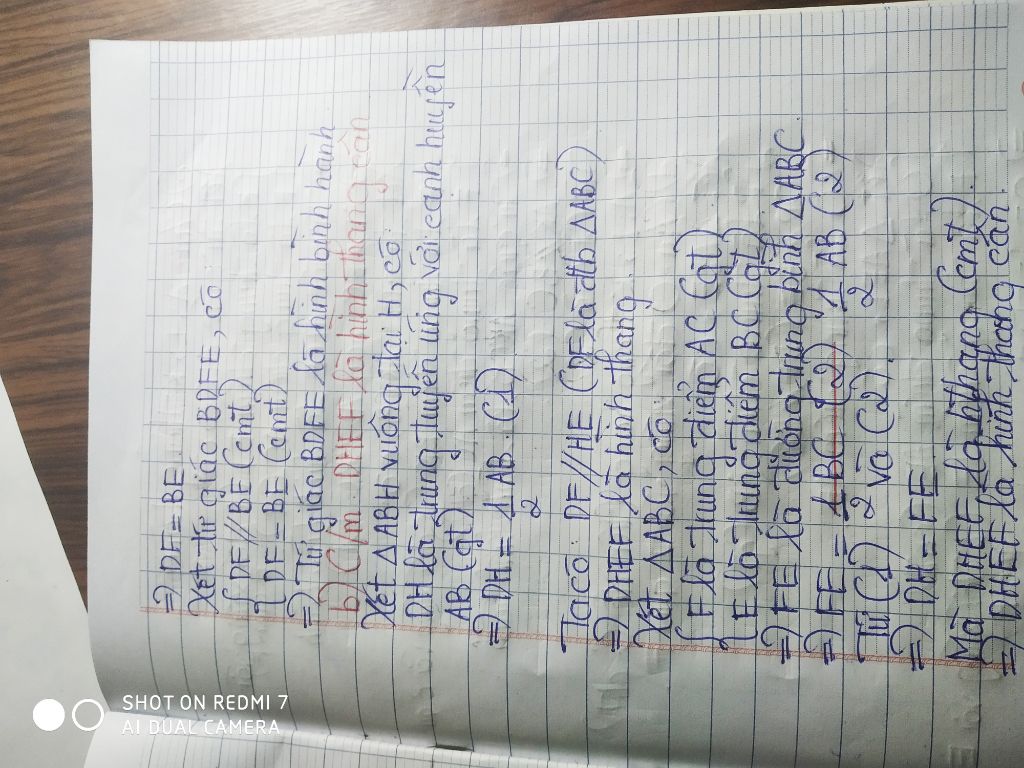 => DF = BE
Xét tứ giác BDFE, có:
{ DF // BE (cmt)
{ DF = BE (cmt)
=> Tứ giác BDFE là hình bình hành
b) C/m: DHEF là hình thang cân
Xét ΔABH vuông tại H, có:
DH là trung tuyến ứng với cạnh huyền
AB (gt)
=> DH = 1/2 AB (1)
Ta có: DF // HE (DF là đtb ΔABC)
=> DHEF là hình thang.
Xét ΔABC, có:
{ F là trung điểm AC (gt)
{ E là trung điểm BC (gt)
=> FE là đường trung bình ΔABC
=> FE = 1/2 BC (2) 1/2 AB (2)
Từ (1) và (2)
=> DH = FE
Mà DHEF là hthang (cmt)
=> DHEF là hình thang cân.
SHOT ON REDMI 7
AI DUAL CAMERA